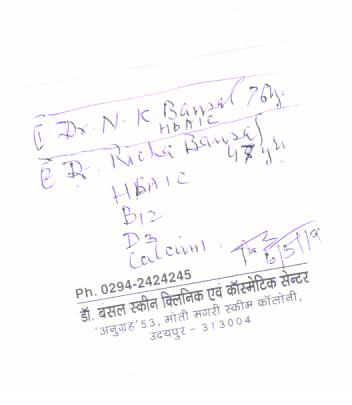 ① Dr. N. K. Bansal 76y.
HBAIC
② Dr. Richa Bansal 47 yrs
HBAIC
B12
D3
Calcium.
Ph. 0294-2424245
डॉ. बंसल स्कीन क्लिनिक एवं कॉस्मेटिक सेन्टर
'अनुग्रह' 53, मोती मगरी स्कीम कॉलोनी,
उदयपुर - 313004